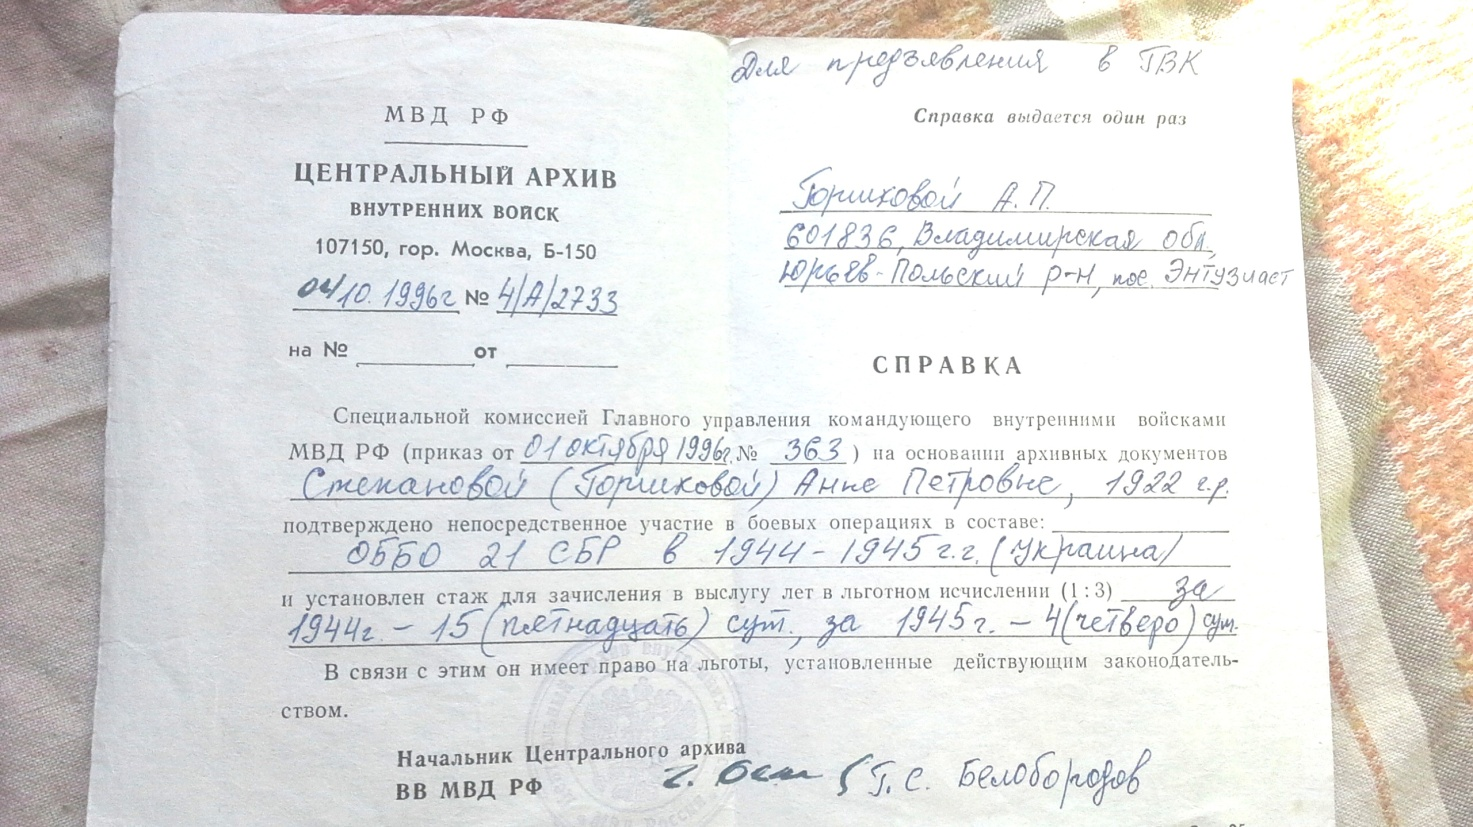 Для предъявления в ГВК
МВД РФ
ЦЕНТРАЛЬНЫЙ АРХИВ
ВНУТРЕННИХ ВОЙСК
107150, гор. Москва, Б-150
04/10. 1996г № 4/А/2733
на № от
Справка выдается один раз
Горшковой А.П.
601836, Владимирская обл.,
Юрьев-Польский р-н, пос. Энтузиаст
СПРАВКА
Специальной комиссией Главного управления командующего внутренними войсками
МВД РФ (приказ от 01 октября 1996г. № 363) на основании архивных документов
Степановой (Горшковой) Анне Петровне, 1922 г.р.
подтверждено непосредственное участие в боевых операциях в составе:
ОББО 21 СБР в 1944-1945 г.г. (Украина)
и установлен стаж для зачисления в выслугу лет в льготном исчислении (1:3) за
1944г. - 15 (пятнадцать) сут., за 1945 г. - 4 (четверо) сут.
В связи с этим он имеет право на льготы, установленные действующим законодатель-
ством.
Начальник Центрального архива
ВВ МВД РФ Г. С. Белобородов